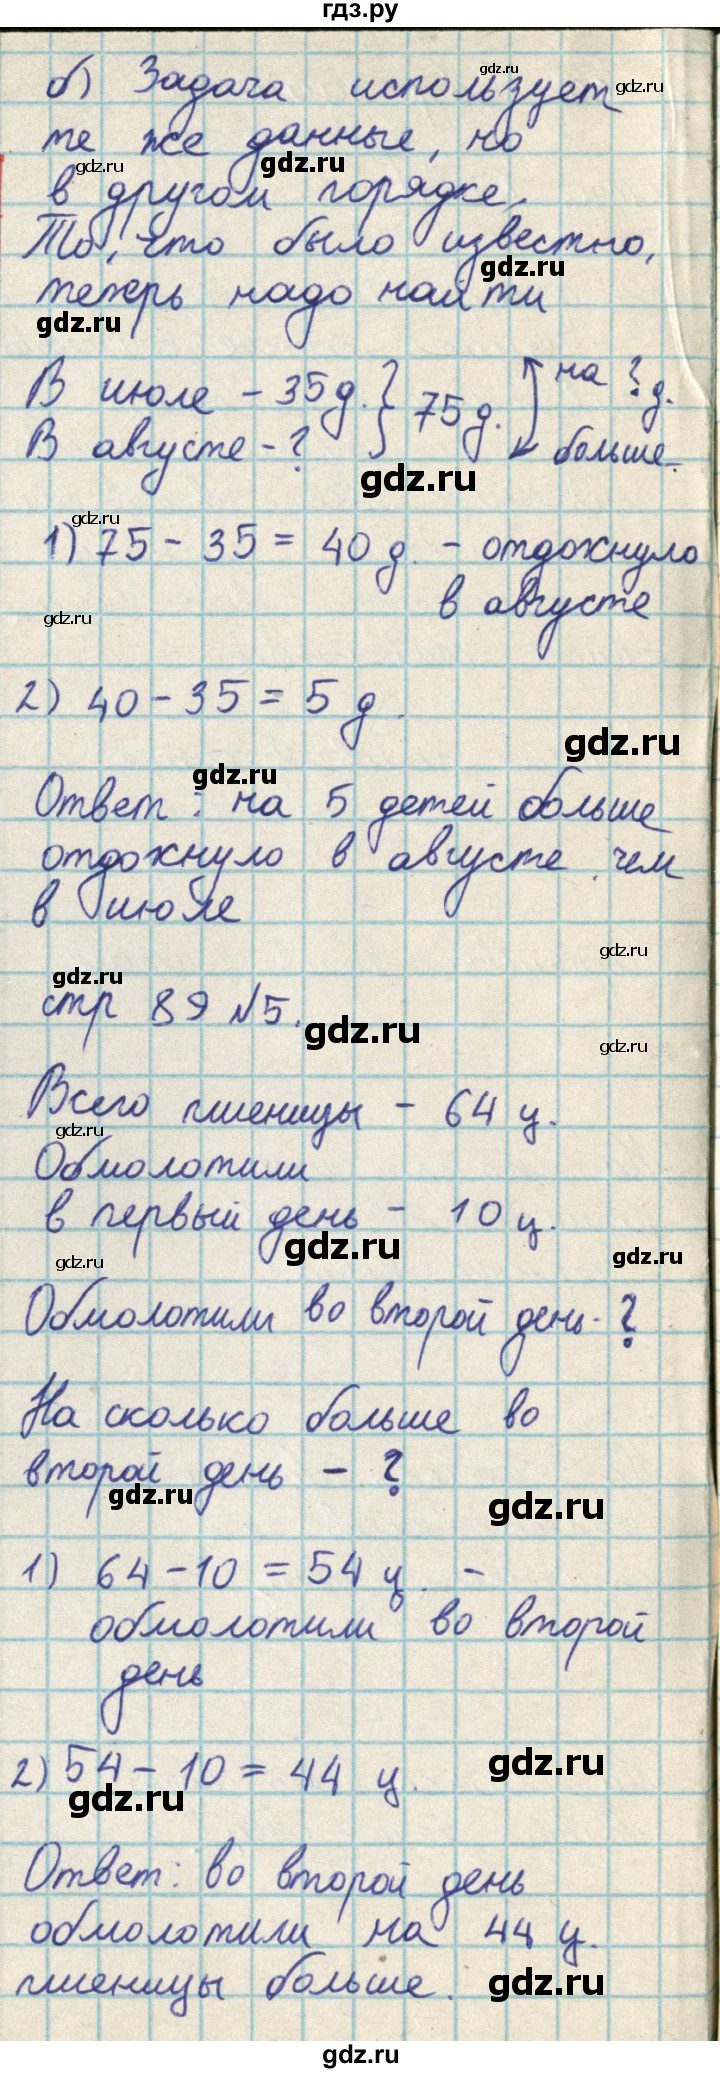 гдз.ру
б) Задача использует
те же данные, но
в другом порядке.
То, что было известно,
теперь надо найти
В июле - 35 д.
В августе - ?
75 д.
на ? д.
больше.
1) 75 - 35 = 40 д. - отдохнуло
в августе
2) 40 - 35 = 5 д.
Ответ: на 5 детей больше
отдохнуло в августе, чем
в июле
стр 89 №5.
Всего пшеницы - 64 ц.
Обмолотили
в первый день - 10 ц.
Обмолотили во второй день - ?
На сколько больше во
второй день - ?
1) 64 - 10 = 54 ц. -
обмолотили во второй
день
2) 54 - 10 = 44 ц.
Ответ: во второй день
обмолотили на 44 ц.
пшеницы больше.
gdz.ru